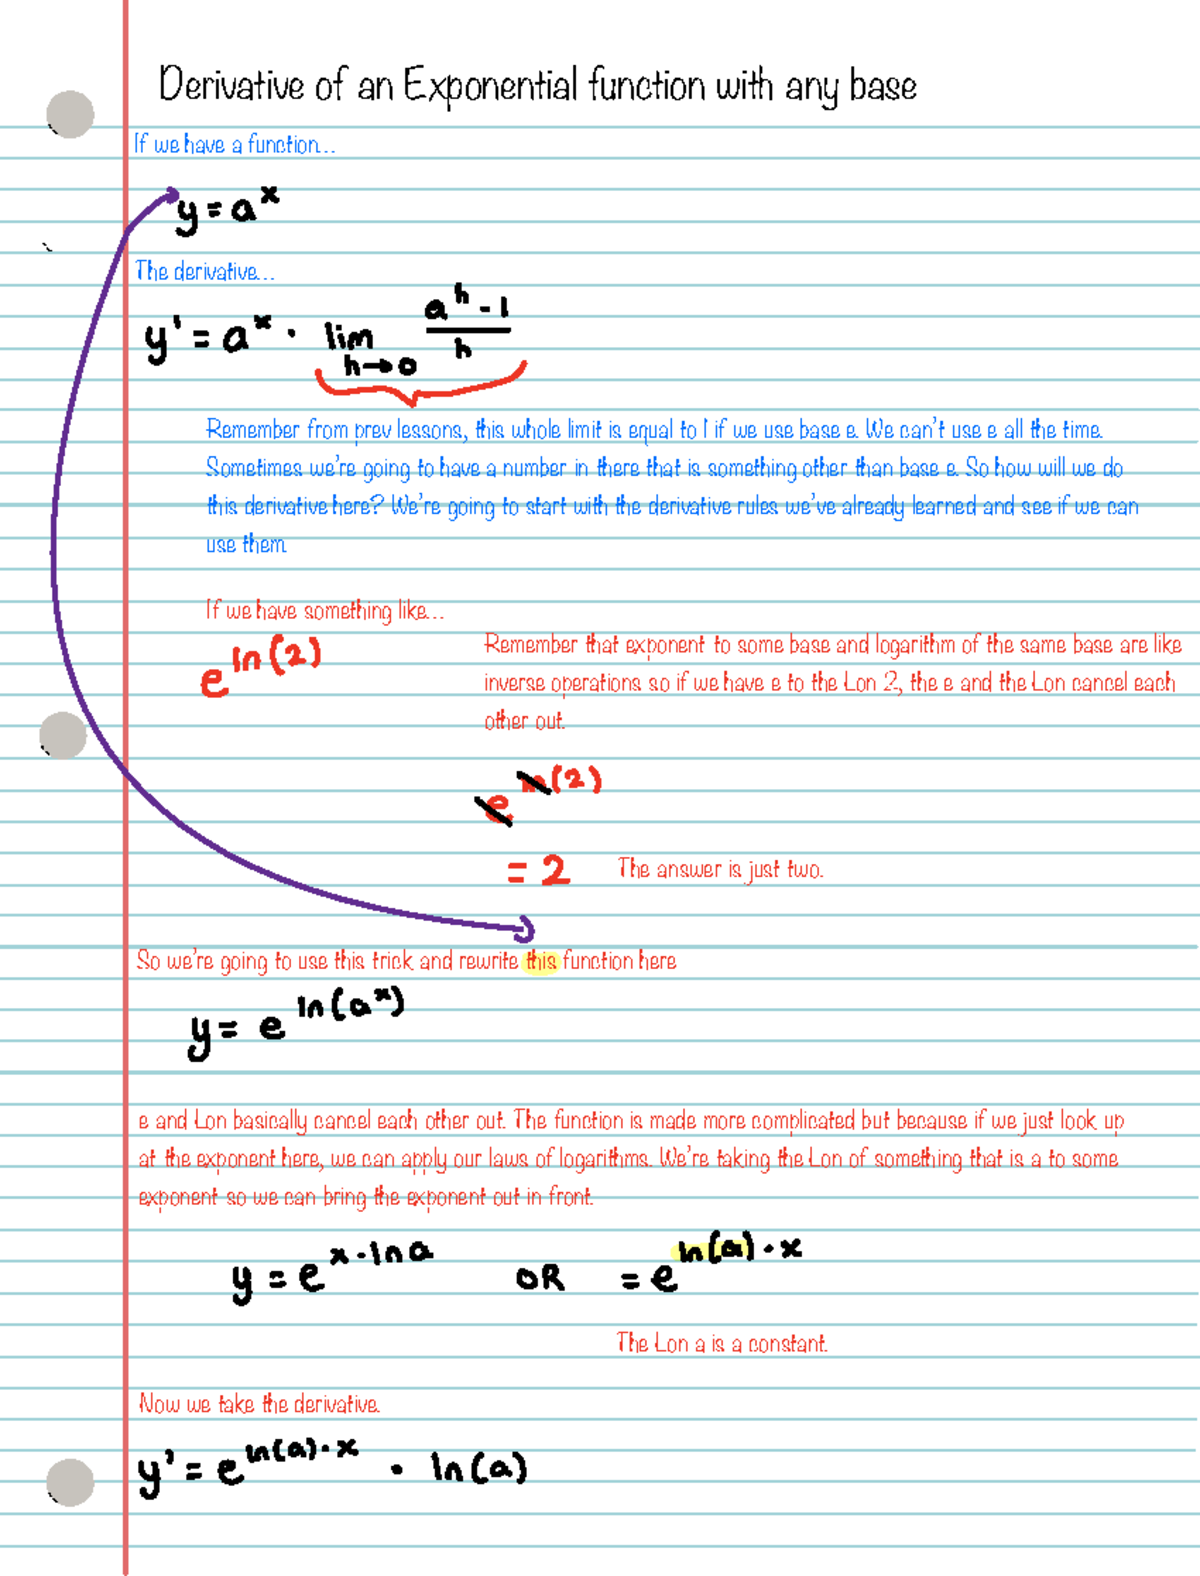 Derivative of an Exponential function with any base
If we have a function...
y = a^x
The derivative...
y' = a^x · lim h→0 (a^h - 1)/h
Remember from prev lessons, this whole limit is equal to 1 if we use base e. We can't use e all the time.
Sometimes we're going to have a number in there that is something other than base e. So how will we do
this derivative here? We're going to start with the derivative rules we've already learned and see if we can
use them.
If we have something like...
e^ln(2)
Remember that exponent to some base and logarithm of the same base are like
inverse operations so if we have e to the Lon 2, the e and the Lon cancel each
other out.
e^ln(2)
= 2 The answer is just two.
So we're going to use this trick and rewrite this function here
y = e^ln(a^x)
e and Lon basically cancel each other out. The function is made more complicated but because if we just look up
at the exponent here, we can apply our laws of logarithms. We're taking the Lon of something that is a to some
exponent so we can bring the exponent out in front.
y = e^x·lna OR = e^ln(a)·x
The Lon a is a constant.
Now we take the derivative.
y' = e^ln(a)·x · ln(a)